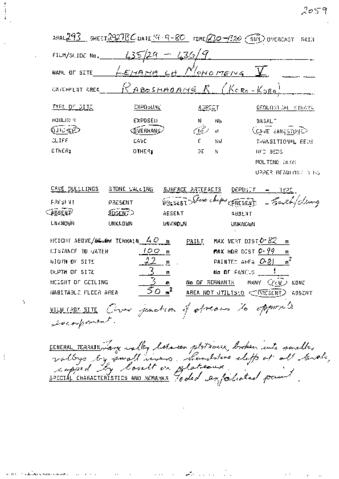 2059
ARAL 293 SHEET 2927BC DATE 19-9-80 TIME SUN OVERCAST RAIN
FILM/SLIDE No. 635/29 - 636/9
NAME OF SITE LEHAHA LA NCHOMENG V
CATCHMENT AREA RABOSHABANE R. (KORO-KORO)
TYPE OF SITE EXPOSURE ASPECT GEOLOGICAL STRATA
BOULDER EXPOSED N NW BASALT
OVERHANG CAVE SANDSTONE
CLIFF CAVE E SW TRANSITIONAL BEDS
OTHER: OTHER: SE RED BEDS
MOLTENO BEDS
CAVE DWELLINGS STONE WALLING SURFACE ARTEFACTS DEPOSIT
PRESENT PRESENT PRESENT - Stone chips PRESENT - Earth/dung
ABSENT ABSENT ABSENT ABSENT
UNKNOWN UNKNOWN UNKNOWN
HEIGHT ABOVE TERRAIN 40 m PAINT MAX VERT DIST 0-82 m
DISTANCE TO WATER 100 m MAX HOR DIST 0-99 m
WIDTH OF SITE 22 m PAINTED AREA 0-81 m²
DEPTH OF SITE 3 m No OF PANELS 1
HEIGHT OF CEILING 3 m No OF REMNANTS MANY FEW NONE
HABITABLE FLOOR AREA 50 m² AREA NOT UTILISED PRESENT ABSENT
VIEW FROM SITE Over junction of streams to opposite
escarpment.
GENERAL TERRAIN Long valley between plateaux, broken into smaller
valleys by small rivers. Sandstone cliffs at all levels,
capped by basalt on plateaux.
SPECIAL CHARACTERISTICS AND REMARKS Faded exfoliated paint.